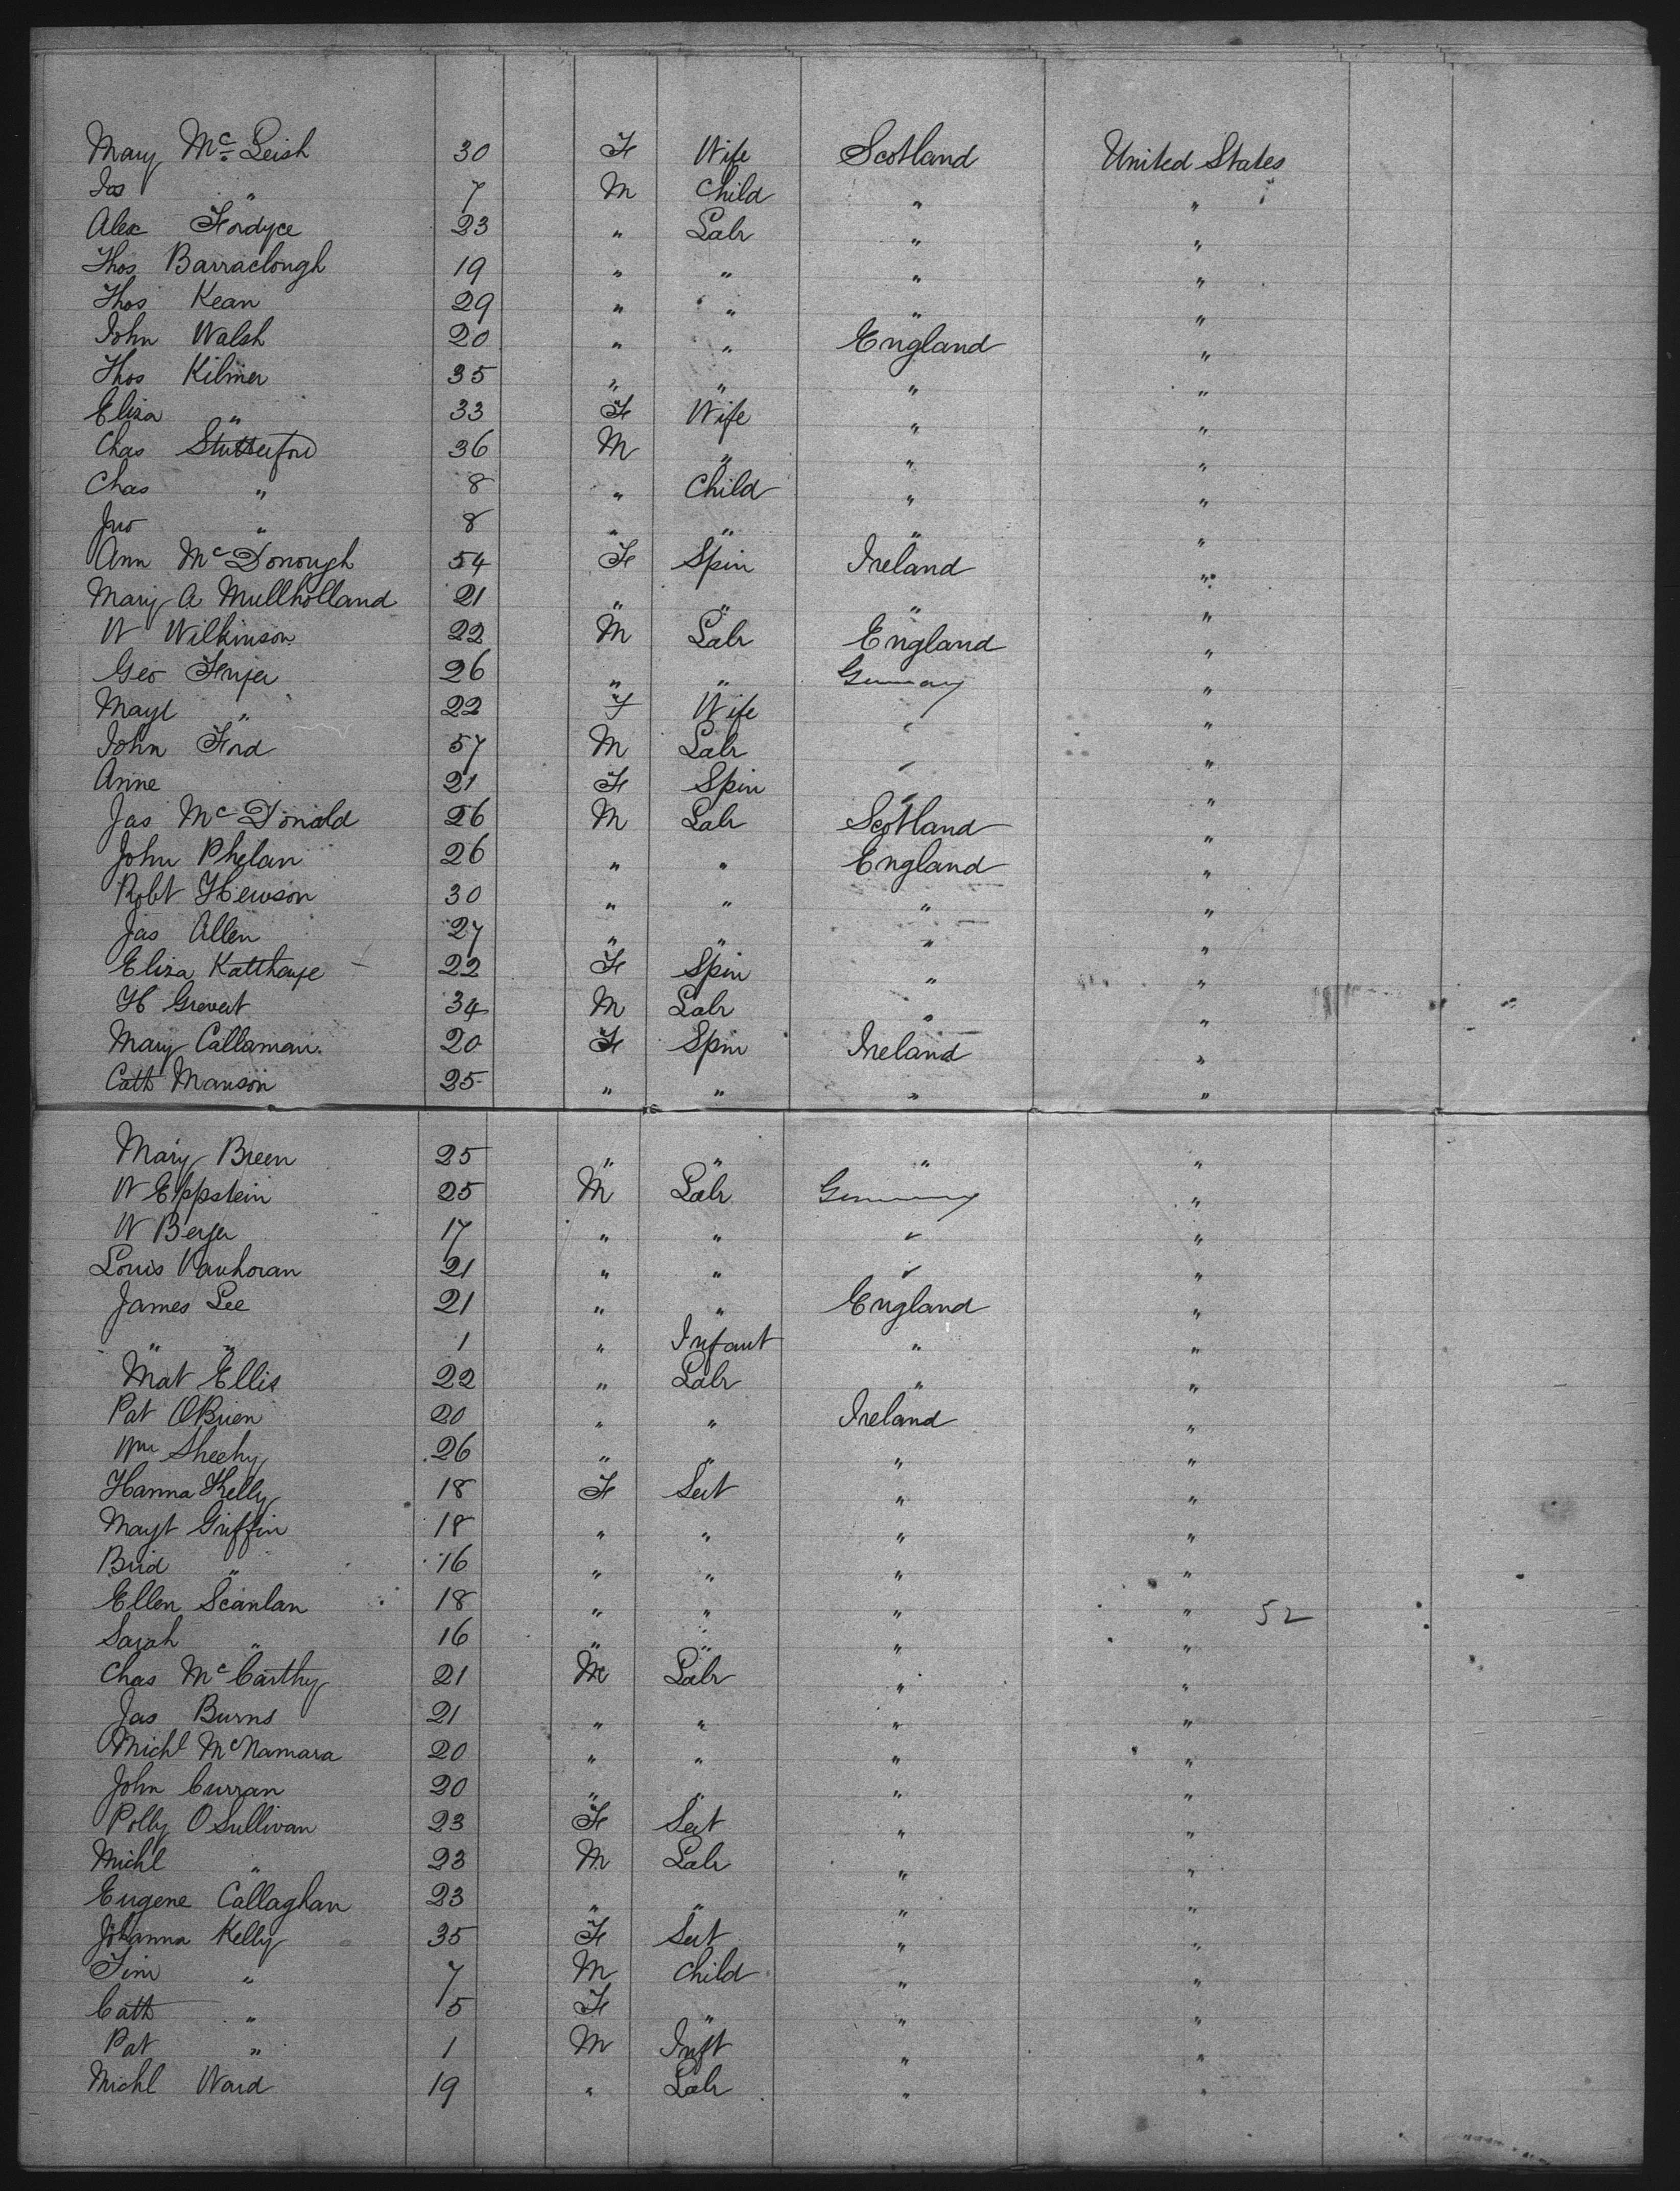 Mary McLeish 30 F Wife Scotland United States
Jas " 7 M Child " "
Alex Fordyce 23 " Labr " "
Thos Barraclough 19 " " " "
Thos Kean 29 " " " "
John Walsh 20 " " England "
Thos Kilmer 35 " " " "
Eliza " 33 F Wife " "
Chas Stutterford 36 M " " "
Chas " 8 " Child " "
Jno " 8 " " " "
Ann McDonough 54 F Spin Ireland "
Mary A Mullholland 21 " " " "
W Wilkinson 22 M Labr England "
Geo 26 " " Germany "
Magt " 22 F Wife " "
John Ford 57 M Labr " "
Anne 21 F Spin " "
Jas McDonald 26 M Labr Scotland "
John Phelan 26 " " England "
Robt Hewson 30 " " " "
Jas Allen 27 " " " "
Eliza 22 F Spin " "
H Grevert 34 M Labr " "
Mary Callaman 20 F Spin Ireland "
Cath Manson 25 " " " "
Mary Breen 25 " " " "
W Eppstein 25 M Labr Germany "
W Berger 17 " " " "
Louis Vanhoran 21 " " " "
James Lee 21 " " England "
" " 1 " Infant " "
Mat Ellis 22 " Labr " "
Pat OBrien 20 " " Ireland "
Wm Sheehy 26 " " " "
Hanna Kelly 18 F Sert " "
Magt Griffin 18 " " " "
Brid " 16 " " " "
Ellen Scanlan 18 " " " " 52
Sarah " 16 " " " "
Chas McCarthy 21 M Labr " "
Jas Burns 21 " " " "
Michl McNamara 20 " " " "
John Curran 20 " " " "
Polly OSullivan 23 F Sert " "
Michl " 23 M Labr " "
Eugene Callaghan 23 " " " "
Johanna Kelly 35 F Sert " "
Tim " 7 M Child " "
Cath " 5 F " " "
Pat " 1 M Inft " "
Michl Ward 19 " Labr " "